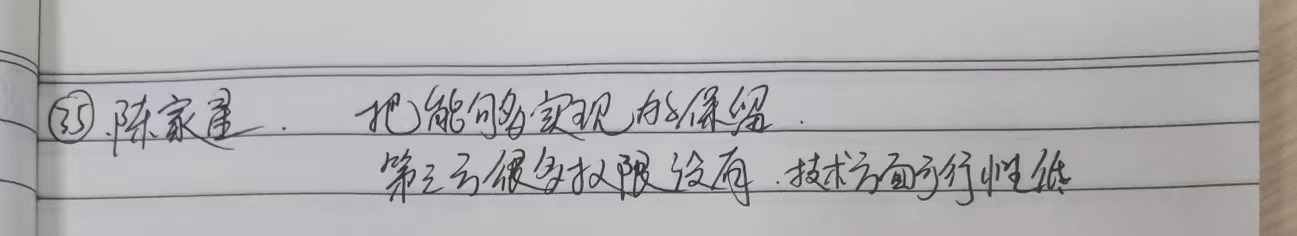 ㉟ 陈家建. 把能够实现的保留.
第三方很多权限没有.技术方面可行性低